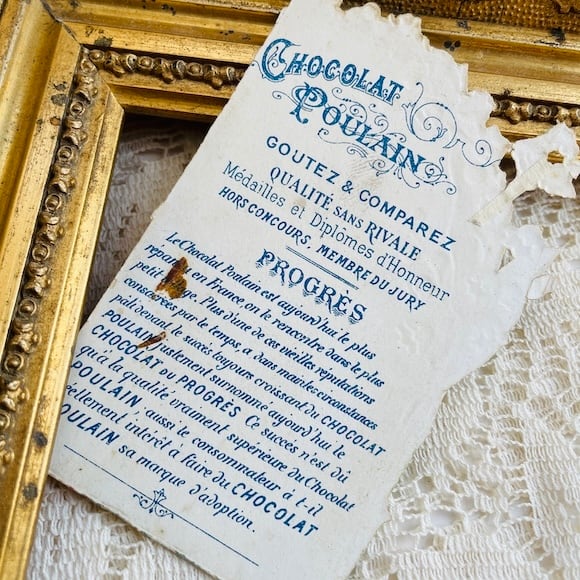 CHOCOLAT
POULAIN
GOUTEZ & COMPAREZ
QUALITÉ SANS RIVALE
Médailles et Diplômes d'Honneur
HORS CONCOURS, MEMBRE DU JURY
PROGRÈS
Le Chocolat Poulain est aujourd'hui le plus
en France, on le rencontre dans le plus
petit Plus d'une de ces vieilles réputations
consacrées par le temps, a dans maintes circonstances
pâli devant le succès toujours croissant du CHOCOLAT
POULAIN justement surnommé aujourd'hui le
CHOCOLAT DU PROGRÈS Ce succès n'est dû
qu'à la qualité vraiment supérieure du Chocolat
POULAIN, aussi le consommateur à t-il
réellement intérêt à faire du CHOCOLAT
POULAIN sa marque d'adoption.